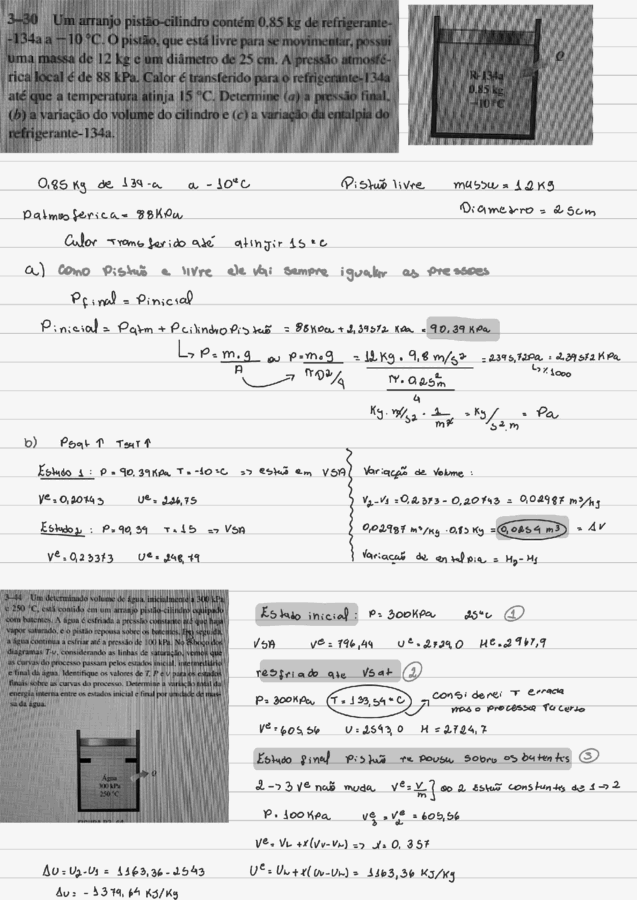 3–30 Um arranjo pistão-cilindro contém 0,85 kg de refrigerante-
-134a a −10 °C. O pistão, que está livre para se movimentar, possui
uma massa de 12 kg e um diâmetro de 25 cm. A pressão atmosfé-
rica local é de 88 kPa. Calor é transferido para o refrigerante-134a
até que a temperatura atinja 15 °C. Determine (a) a pressão final,
(b) a variação do volume do cilindro e (c) a variação da entalpia do
refrigerante-134a.
R-134a
0.85 kg
−10°C
Q
0,85 Kg de 134-a a -10°C
Pistão livre massa = 12 Kg
Diametro = 25cm
Patmosferica = 88KPa
Calor transferido até atinjir 15°C
a) como pistão e livre ele vai sempre igualar as pressoes
Pfinal = Pinicial
Pinicial = Patm + Pcilindro Pistão = 88KPa + 2,39572 KPa = 90,39 KPa
↳ P = m.g/A ou P = m.g/(π D²/4) = 12 Kg . 9,8 m/s² / (π . 0,25m²/4) = 2395,72Pa = 2,39572 KPa
↳ % 1000
Kg. m/s² . 1/m² = Kg/s².m = Pa
b) Psat ↑ Tsat ↑
Estado 1: P = 90,39KPa T = -10°C => estão em VSA
Ve = 0,20743 Ue = 226,75
Estado 2: P = 90,39 T = 15 => VSA
Ve = 0,23373 Ue = 248,79
Variação de volume:
V2-V1 = 0,2373 - 0,20743 = 0,02987 m³/kg
0,02987 m³/kg . 0,85 Kg = 0,0254 m³ = ΔV
Variação de entalpia = H2 - H1
3–44 Um determinado volume de água, inicialmente a 300 kPa
e 250 °C, está contido em um arranjo pistão-cilindro equipado
com batentes. A água é esfriada a pressão constante até que haja
vapor saturado, e o pistão repousa sobre os batentes. Em seguida,
a água continua a esfriar até a pressão de 100 kPa. No esboço dos
diagramas T-v, considerando as linhas de saturação, vemos que
as curvas do processo passam pelos estados inicial, intermediário
e final da água. Identifique os valores de T, P e v para os estados
finais sobre as curvas do processo. Determine a variação total da
energia interna entre os estados inicial e final por unidade de mas-
sa da água.
Água
300 kPa
250 °C
Q
Estado inicial: P = 300KPa 25°C ①
VSA Ve = 796,44 Ue = 2729,0 He = 2967,9
resfriado até Vsat ②
P = 300KPa T = 133,54°C → considerei T errada
mas o processo ta certo
Ve = 605,56 U = 2543,0 H = 2724,7
Estado final Pistão re pousa sobre os batentes ③
2 → 3 Ve não muda Ve = V/m ] os 2 estão constantes de 1 → 2
P = 100KPa Ve3 = Ve2 = 605,56
Ve = VL + X(VV-VL) => X = 0,357
Ue = UL + X(UV-UL) = 1163,36 KJ/Kg
ΔU = U2-U1 = 1163,36 - 2543
ΔU = - 1379,64 KJ/Kg